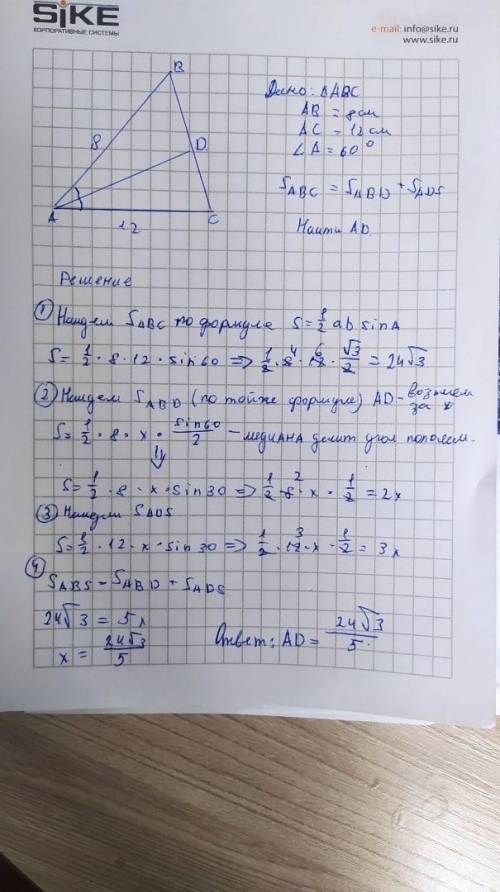 SiKE
КОРПОРАТИВНЫЕ СИСТЕМЫ
e-mail: info@sike.ru
www.sike.ru
B
8
D
A
C
12
Дано: ΔABC
AB = 8см
AC = 12см
∠A = 60°
S_ABC = S_ABD + S_ADS
Найти AD
Решение
① Найдем S_ABC по формуле S = 1/2 ab sinA
S = 1/2 · 8 · 12 · sin60 => 1/2 · 8 4 · 12 6 · √3/2 = 24√3
② Найдем S_ABD (по тойже формуле) AD - возмем за x
S = 1/2 · 8 · x · sin60/2 - медиана делит угол пополам.
⇓
S = 1/2 · 8 · x · sin30 => 1/2 · 8 2 · x · 1/2 = 2x
③ Найдем S_ADS
S = 1/2 · 12 · x · sin30 => 1/2 · 12 3 · x · 1/2 = 3x
④
S_ABS = S_ABD + S_ADS
24√3 = 5x
x = 24√3/5
Ответ: AD = 24√3/5